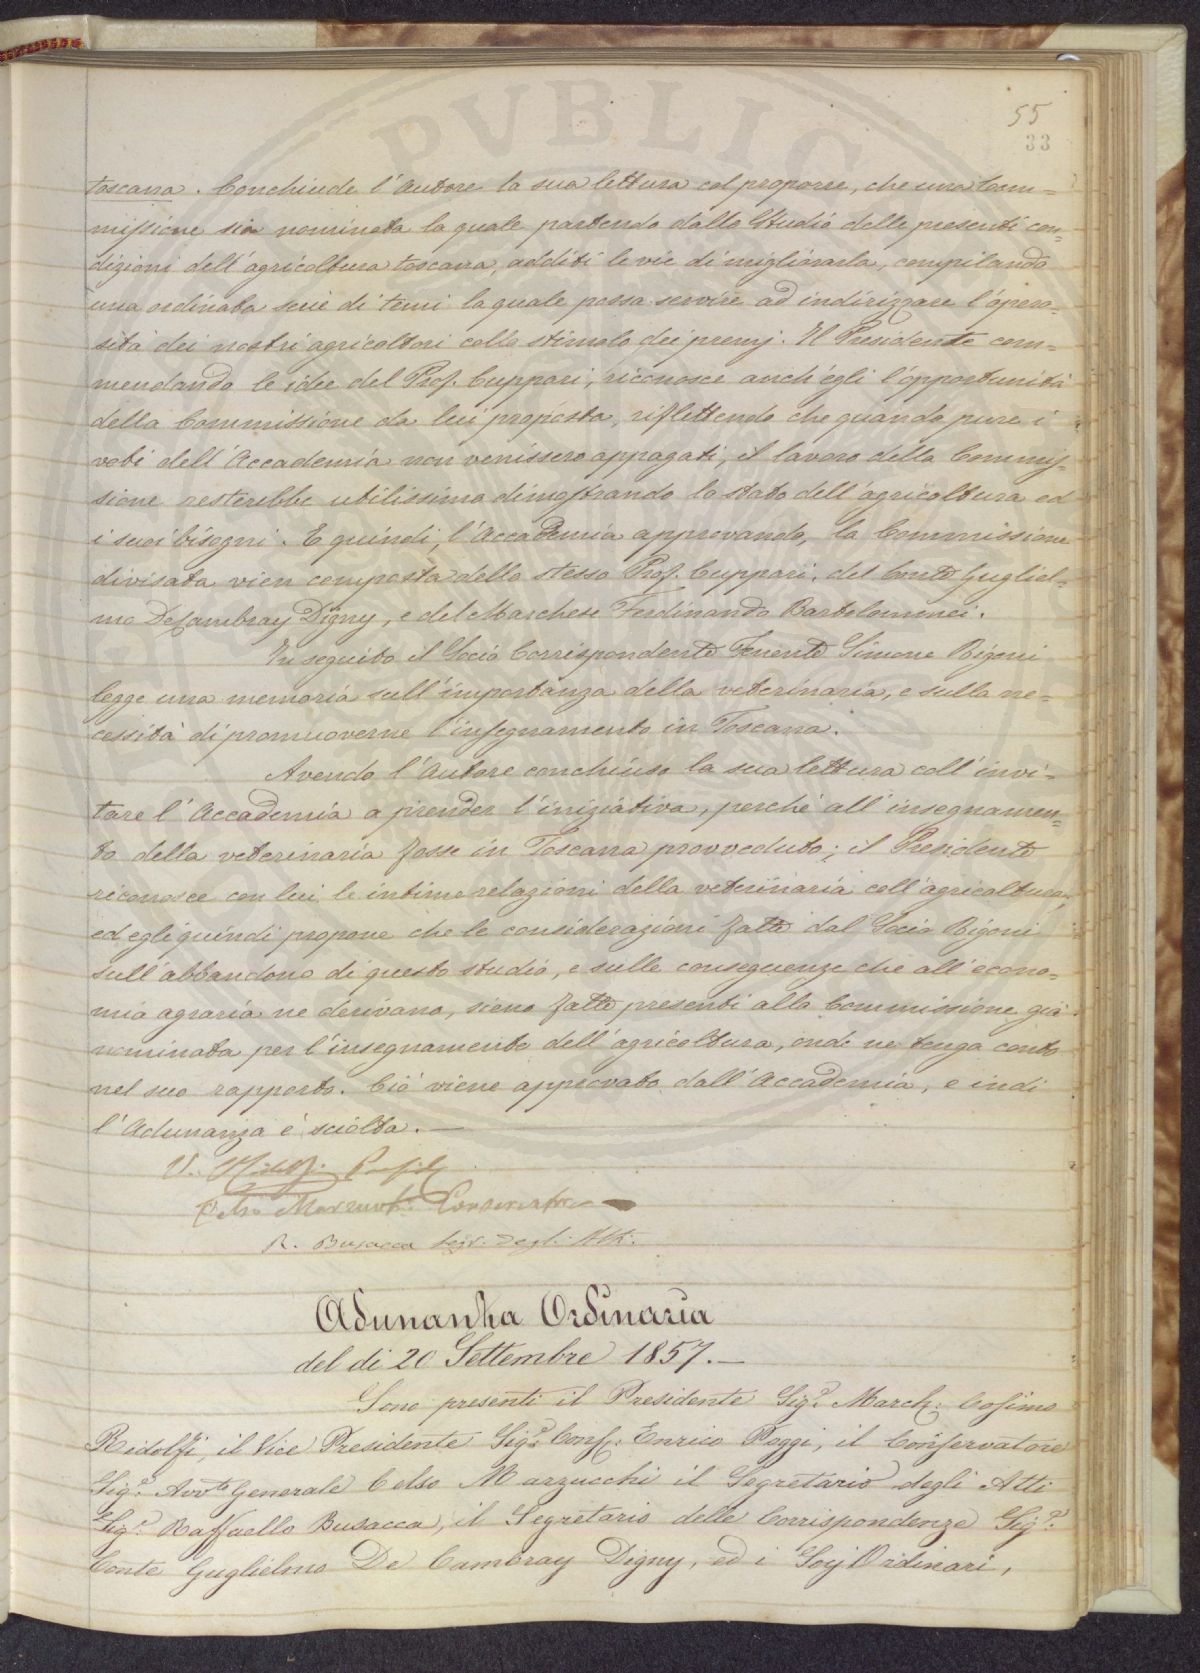 PVBLIC
55
33
toscana. Conchiude l'Autore la sua lettura col proporre, che una Com=
missione sia nominata la quale partendo dallo Studio delle presenti con=
dizioni dell'agricoltura toscana, additi le vie di migliorarla, compilando
una ordinata serie di temi la quale possa servire ad indirizzare l'opero=
sità dei nostri agricoltori collo stimolo dei premj. Il Presidente com=
mendando le idee del Prof. Cuppari, riconosce anch'egli l'opportunità
della Commissione da lui proposta, riflettendo che quando pure i
voti dell'Accademia non venissero appagati, il lavoro della Commis=
sione resterebbe utilissimo dimostrando lo stato dell'agricoltura ed
i suoi bisogni. E quindi, l'Accademia approvando, la Commissione
divisata vien composta dello stesso Prof. Cuppari, del Conte Gugliel=
mo DeCambray Digny, e del Marchese Ferdinando Bartolommei.
In seguito il Socio Corrispondente Tenente Simone Bigoni
legge una memoria sull'importanza della veterinaria, e sulla ne=
cessità di promuoverne l'insegnamento in Toscana.
Avendo l'Autore conchiuso la sua lettura coll'invi=
tare l'Accademia a prender l'iniziativa, perché all'insegnamen=
to della veterinaria fosse in Toscana provveduto; il Presidente
riconosce con lui le intime relazioni della veterinaria coll'agricoltura,
ed egli quindi propone che le considerazioni fatte dal Socio Bigoni
sull'abbandono di questo studio, e sulle conseguenze che all'econo=
mia agraria ne derivano, sieno fatte presenti alla Commissione già
nominata per l'insegnamento dell'agricoltura, onde ne tenga conto
nel suo rapporto. Ciò viene approvato dall'Accademia, e indi
l'Adunanza è sciolta.—
Ridolfi
Celso Marzucchi Conservatore
R. Busacca Segr. Degli Atti.
Adunanza Ordinaria
del dì 20 Settembre 1857.—
Sono presenti il Presidente Sigr. March: Cosimo
Ridolfi, il Vice Presidente Sigr. Cons: Enrico Poggi, il Conservatore
Sigr. Avvto. Generale Celso Marzucchi il Segretario degli Atti
Sigr. Raffaello Busacca, il Segretario delle Corrispondenze Sigr.
Conte Guglielmo De Cambray Digny, ed i Socj Ordinari,